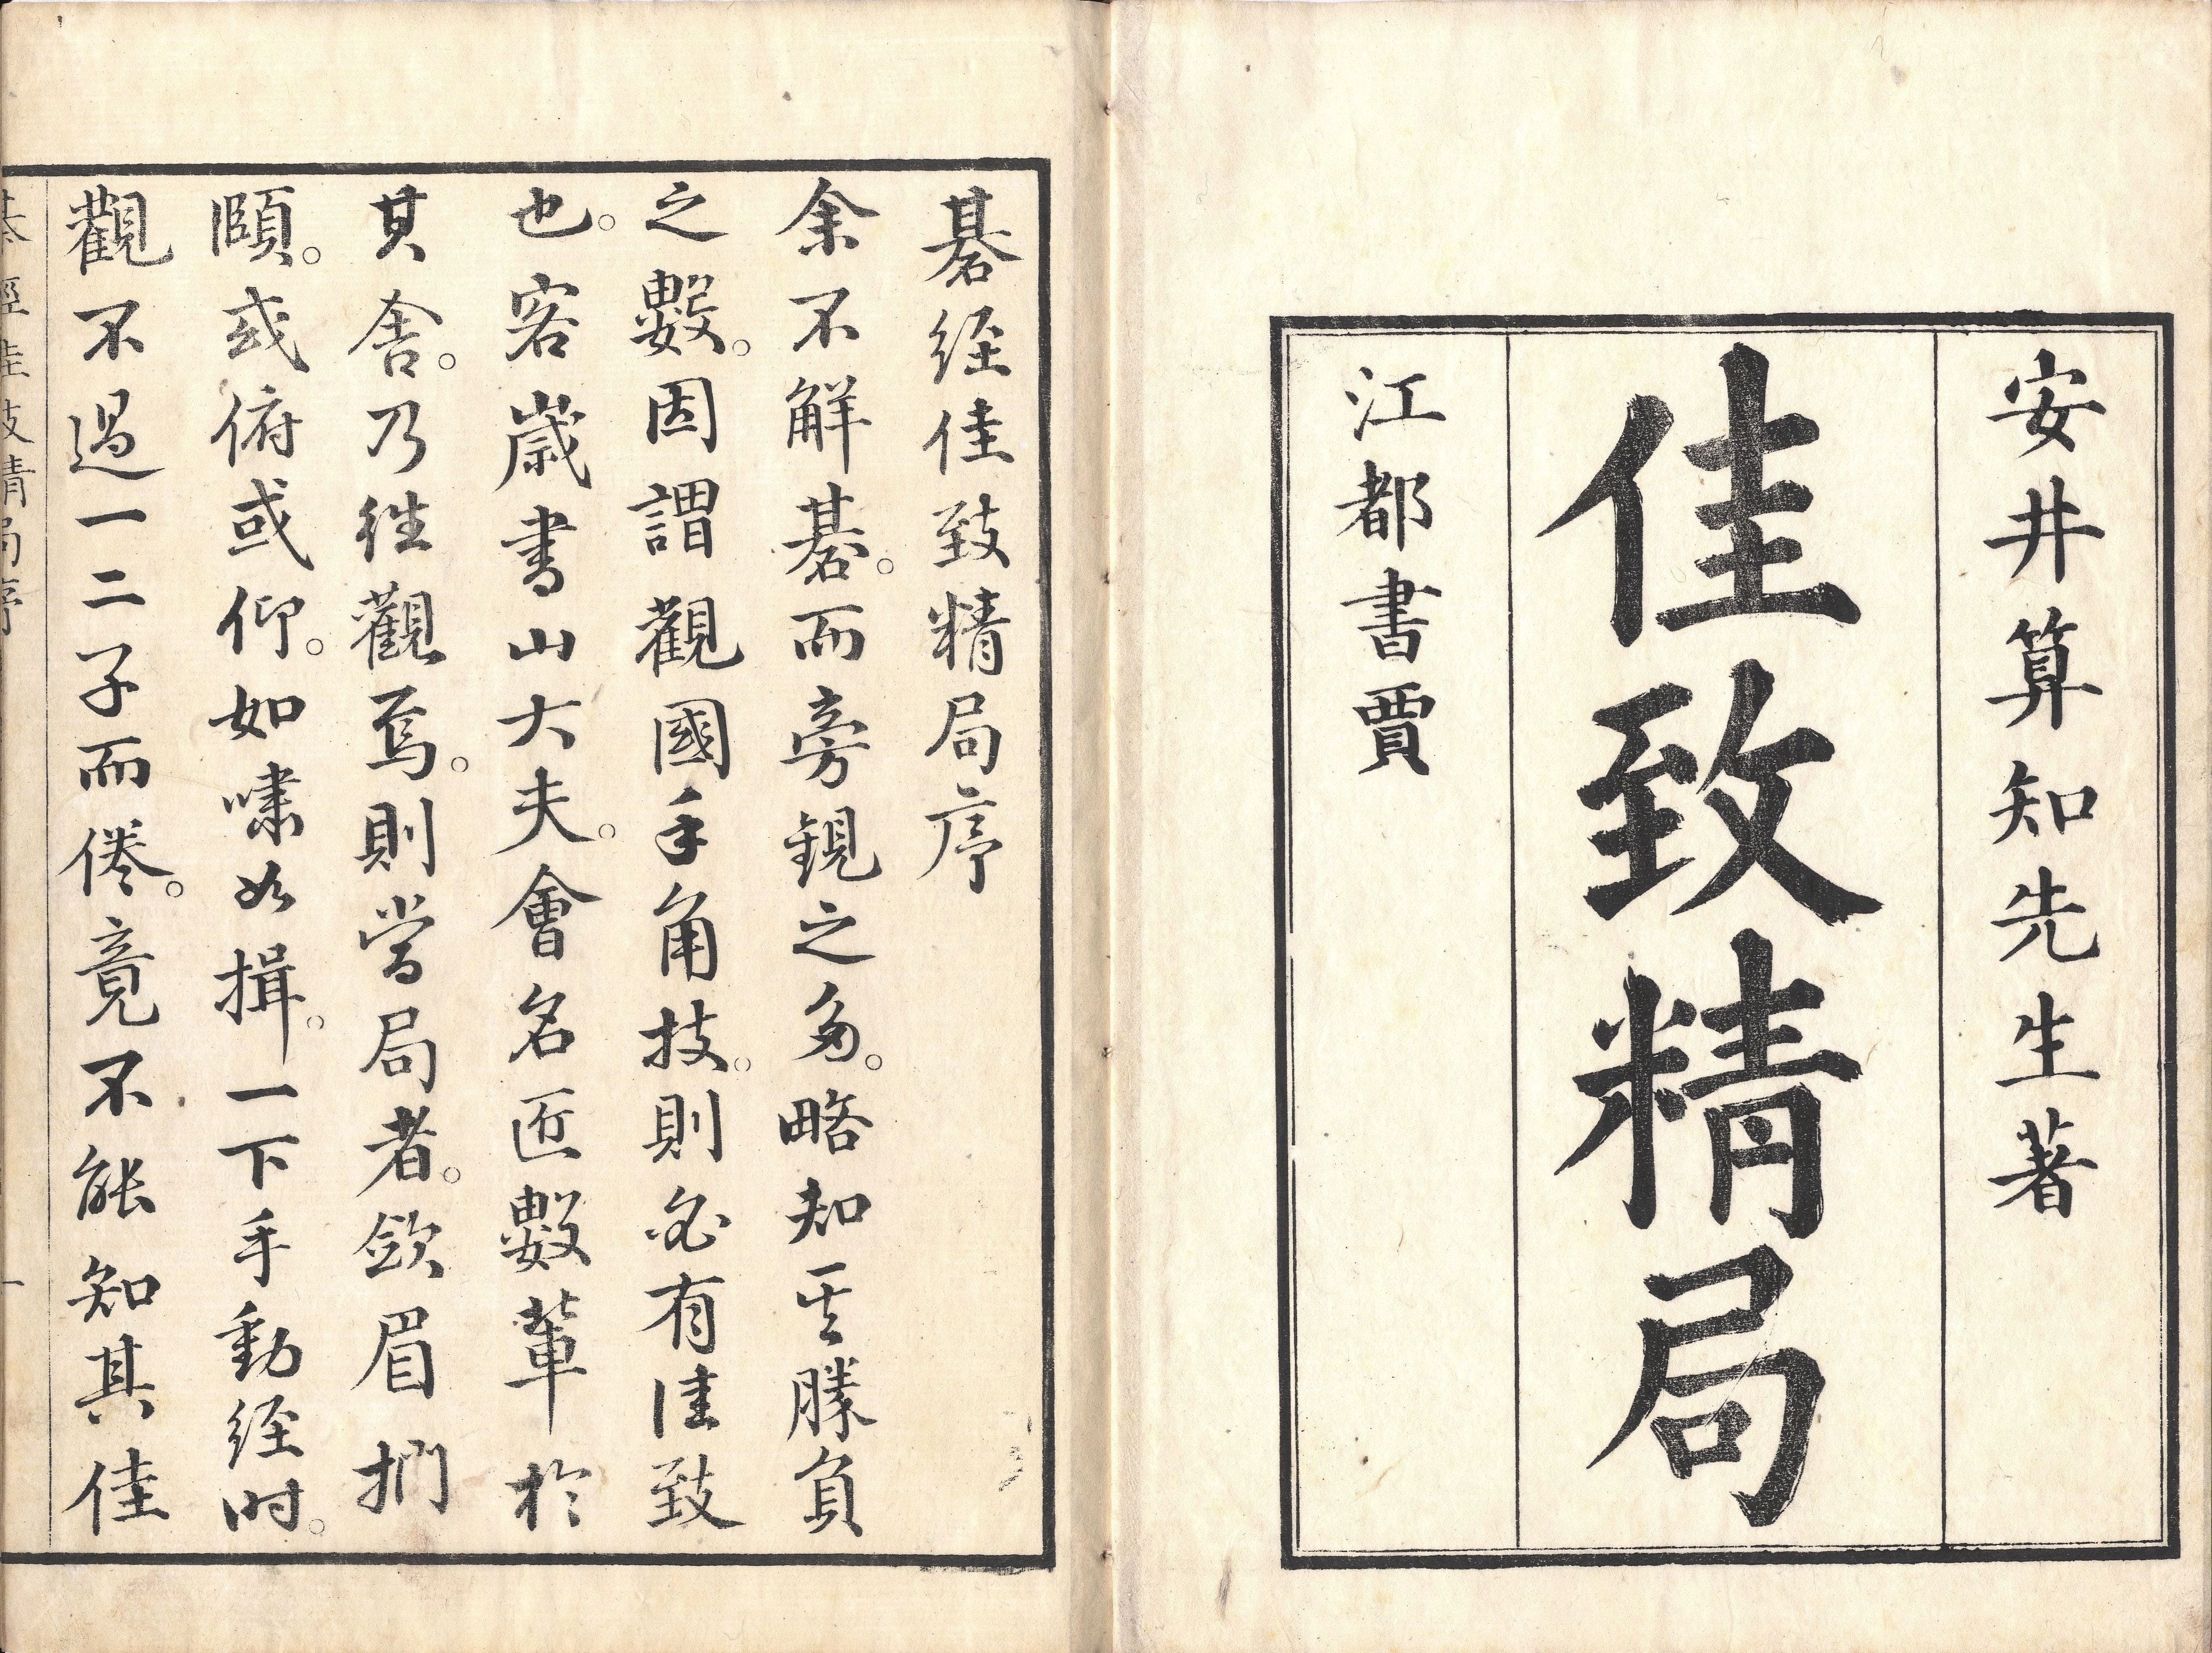 安井算知先生著
佳致精局
江都書賈
碁經佳致精局序
余不解碁。而旁覩之多。略知其勝負
之數。因謂觀國手角技。則必有佳致
也。客歲書山大夫。會名匠數輩於
其舍。乃往觀焉。則當局者。斂眉捫
頤。或俯或仰。如嘯如揖。一下手動經時。
觀不過一二子而倦。竟不能知其佳
碁經佳致精局序
一